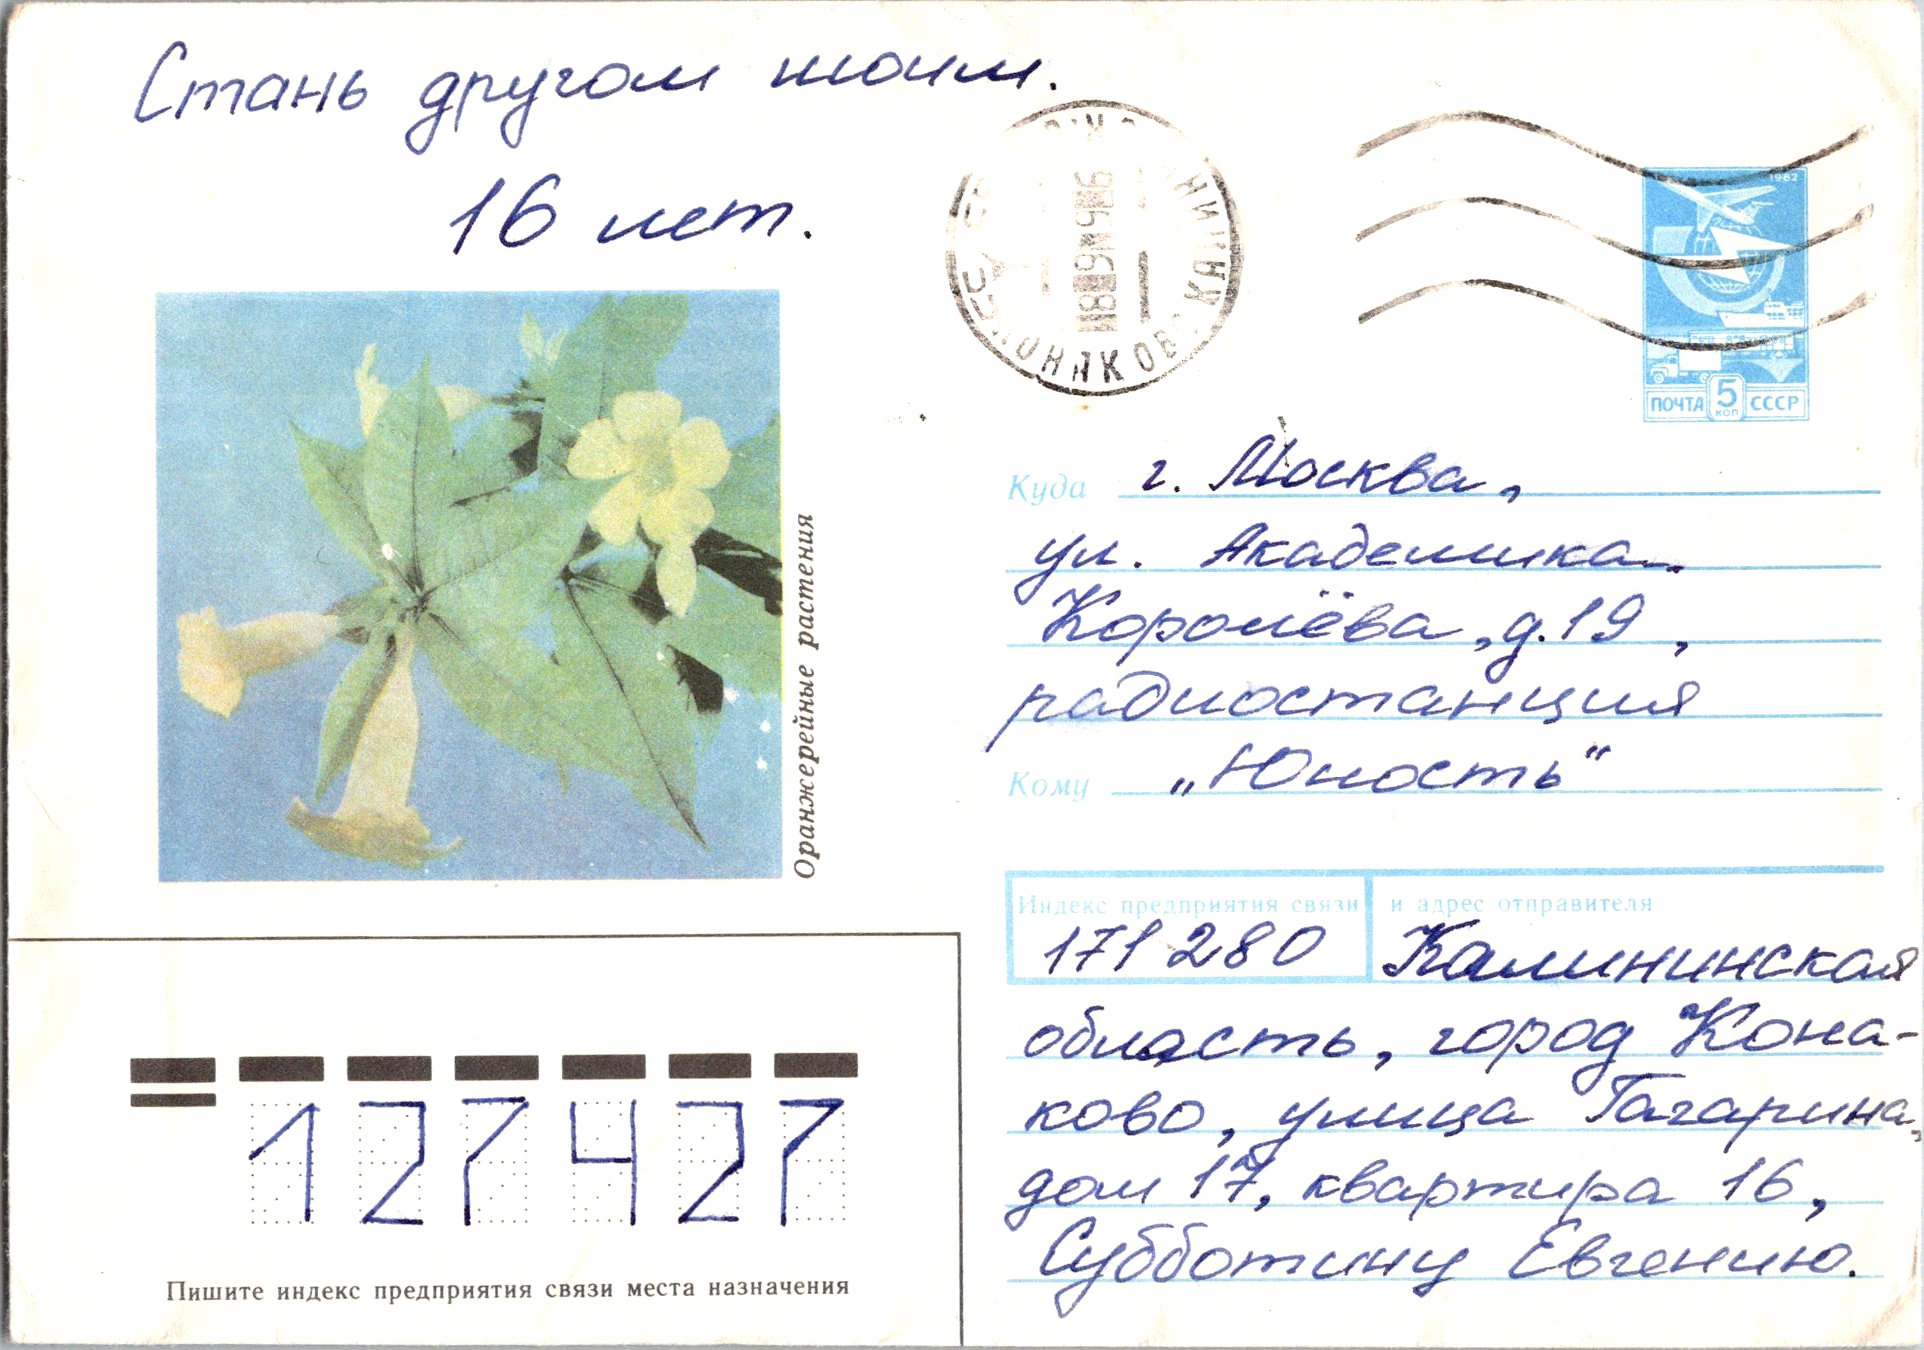 Стань другом моим.
16 лет.
1982
ПОЧТА 5 СССР
КОП
Оранжерейные растения
Куда г. Москва,
ул. Академика
Королёва, д. 19,
радиостанция
Кому „Юность“
Индекс предприятия связи и адрес отправителя
171280 Калининская
область, город Кона-
ково, улица Гагарина,
дом 17, квартира 16,
Субботину Евгению.
127427
Пишите индекс предприятия связи места назначения